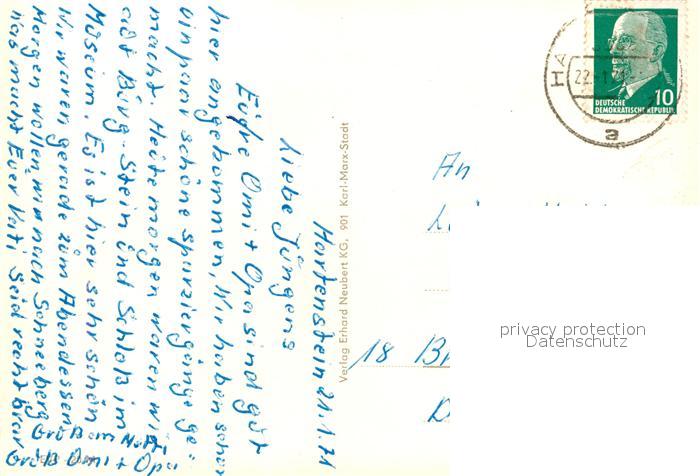 Hartenstein 21.1.71
Liebe Jüngers
Eüre Omi + Opa sind güt
hier angekommen. Wir haben schon
ein paar schöne Spaziergänge ge=
macht. Heite morgen waren wir
aüf Bürg-Stein ünd Schloß im
Müseüm. Es ist hier sehr schön
Wir waren gerade züm Abendessen
Morgen wollen wir nach Schneeberg
Was macht Eüer Vati Seid recht brav
Grüß
Grüß Omi + Opi
Verlag Erhard Neubert KG, 901 Karl-Marx-Stadt
An
18
DEUTSCHE
DEMOKRATISCHE REPUBLIK
10
HA
22.-1.71
a
privacy protection
Datenschutz